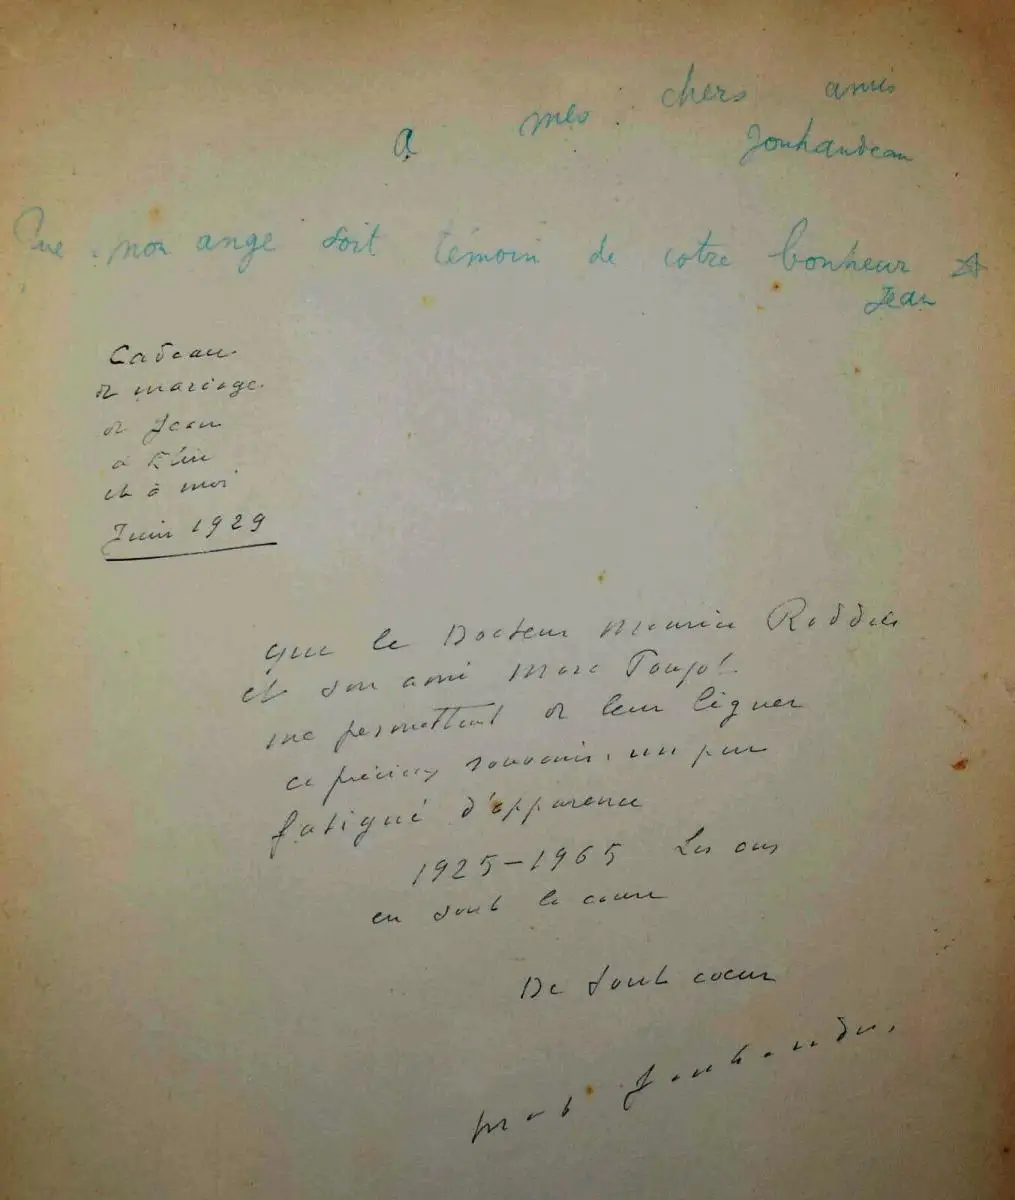 a mes chers amis
Jouhandeau
Que mon ange soit témoin de votre bonheur
Jean
Cadeau
de mariage
de Jean
à Élise
et à moi
Juin 1929
que le Docteur Maurice
et son ami Marc
me permettent de leur léguer
ce précieux souvenir, un peu
fatigué d'apparence
1925-1965 Les ans
en sont la cause
De tout coeur
Marcel Jouhandeau